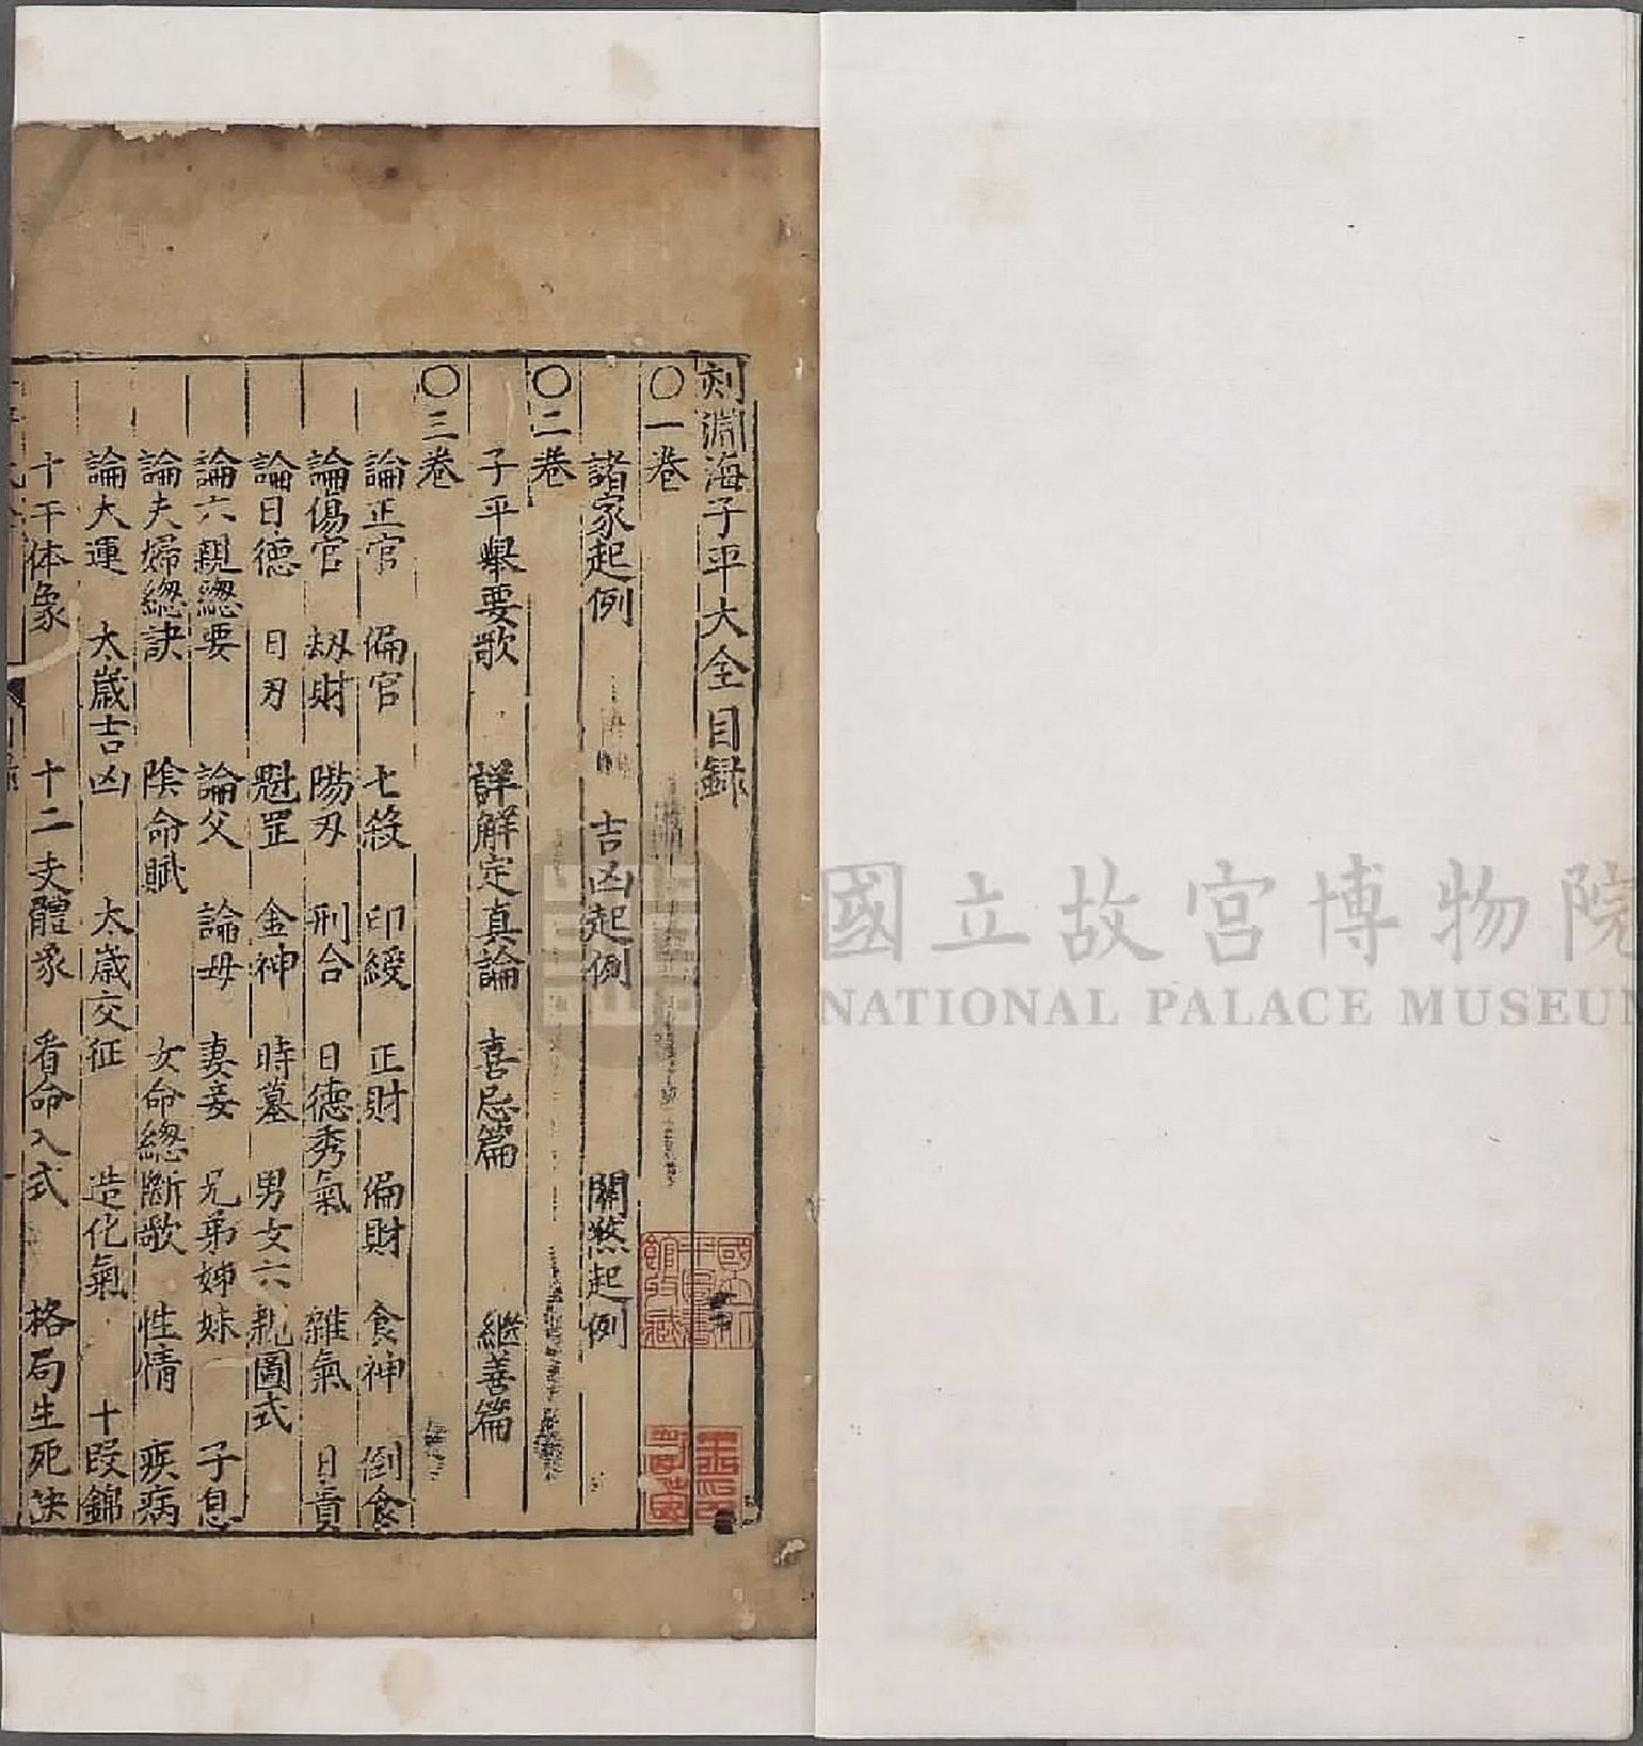 刻淵海子平大全目録
〇一卷
諸家起例 吉凶起例 關煞起例
〇二卷
子平舉要歌 詳解定真論 喜忌篇 繼善篇
〇三卷
論正官 偏官 七殺 印綬 正財 偏財 食神 倒食
論傷官 刼財 陽刃 刑合 日德秀氣 雜氣 日貴
論日德 日刃 魁罡 金神 時墓 男女六親圖式
論六親總要 論父 論母 妻妾 兄弟姊妹 子息
論夫婦總訣 陰命賦 女命總斷歌 性情 疾病
論大運 太歲吉凶 太歲交征 造化氣 十段錦
十干体象 十二支體象 看命入式 格局生死訣
國立北
平圖書
館收藏
國立故宮博物院
NATIONAL PALACE MUSEUM